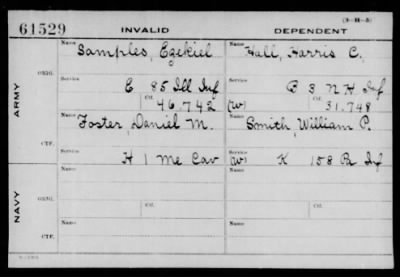 (3-H-5)
61529 INVALID DEPENDENT
Name Samples, Ezekiel Name Hall, Harris C.
ARMY
ORIG. Service E 85 Ill Inf Service B 3 N H Inf
Ctf. 46.742 (W) Ctf. 31.748
Name Foster, Daniel M. Name Smith, William P.
CTF. Service H 1 Me Cav Service (W) K 158 Pa Inf
NAVY
Name Name
ORIG. Ctf. Ctf.
Name Name
CTF.